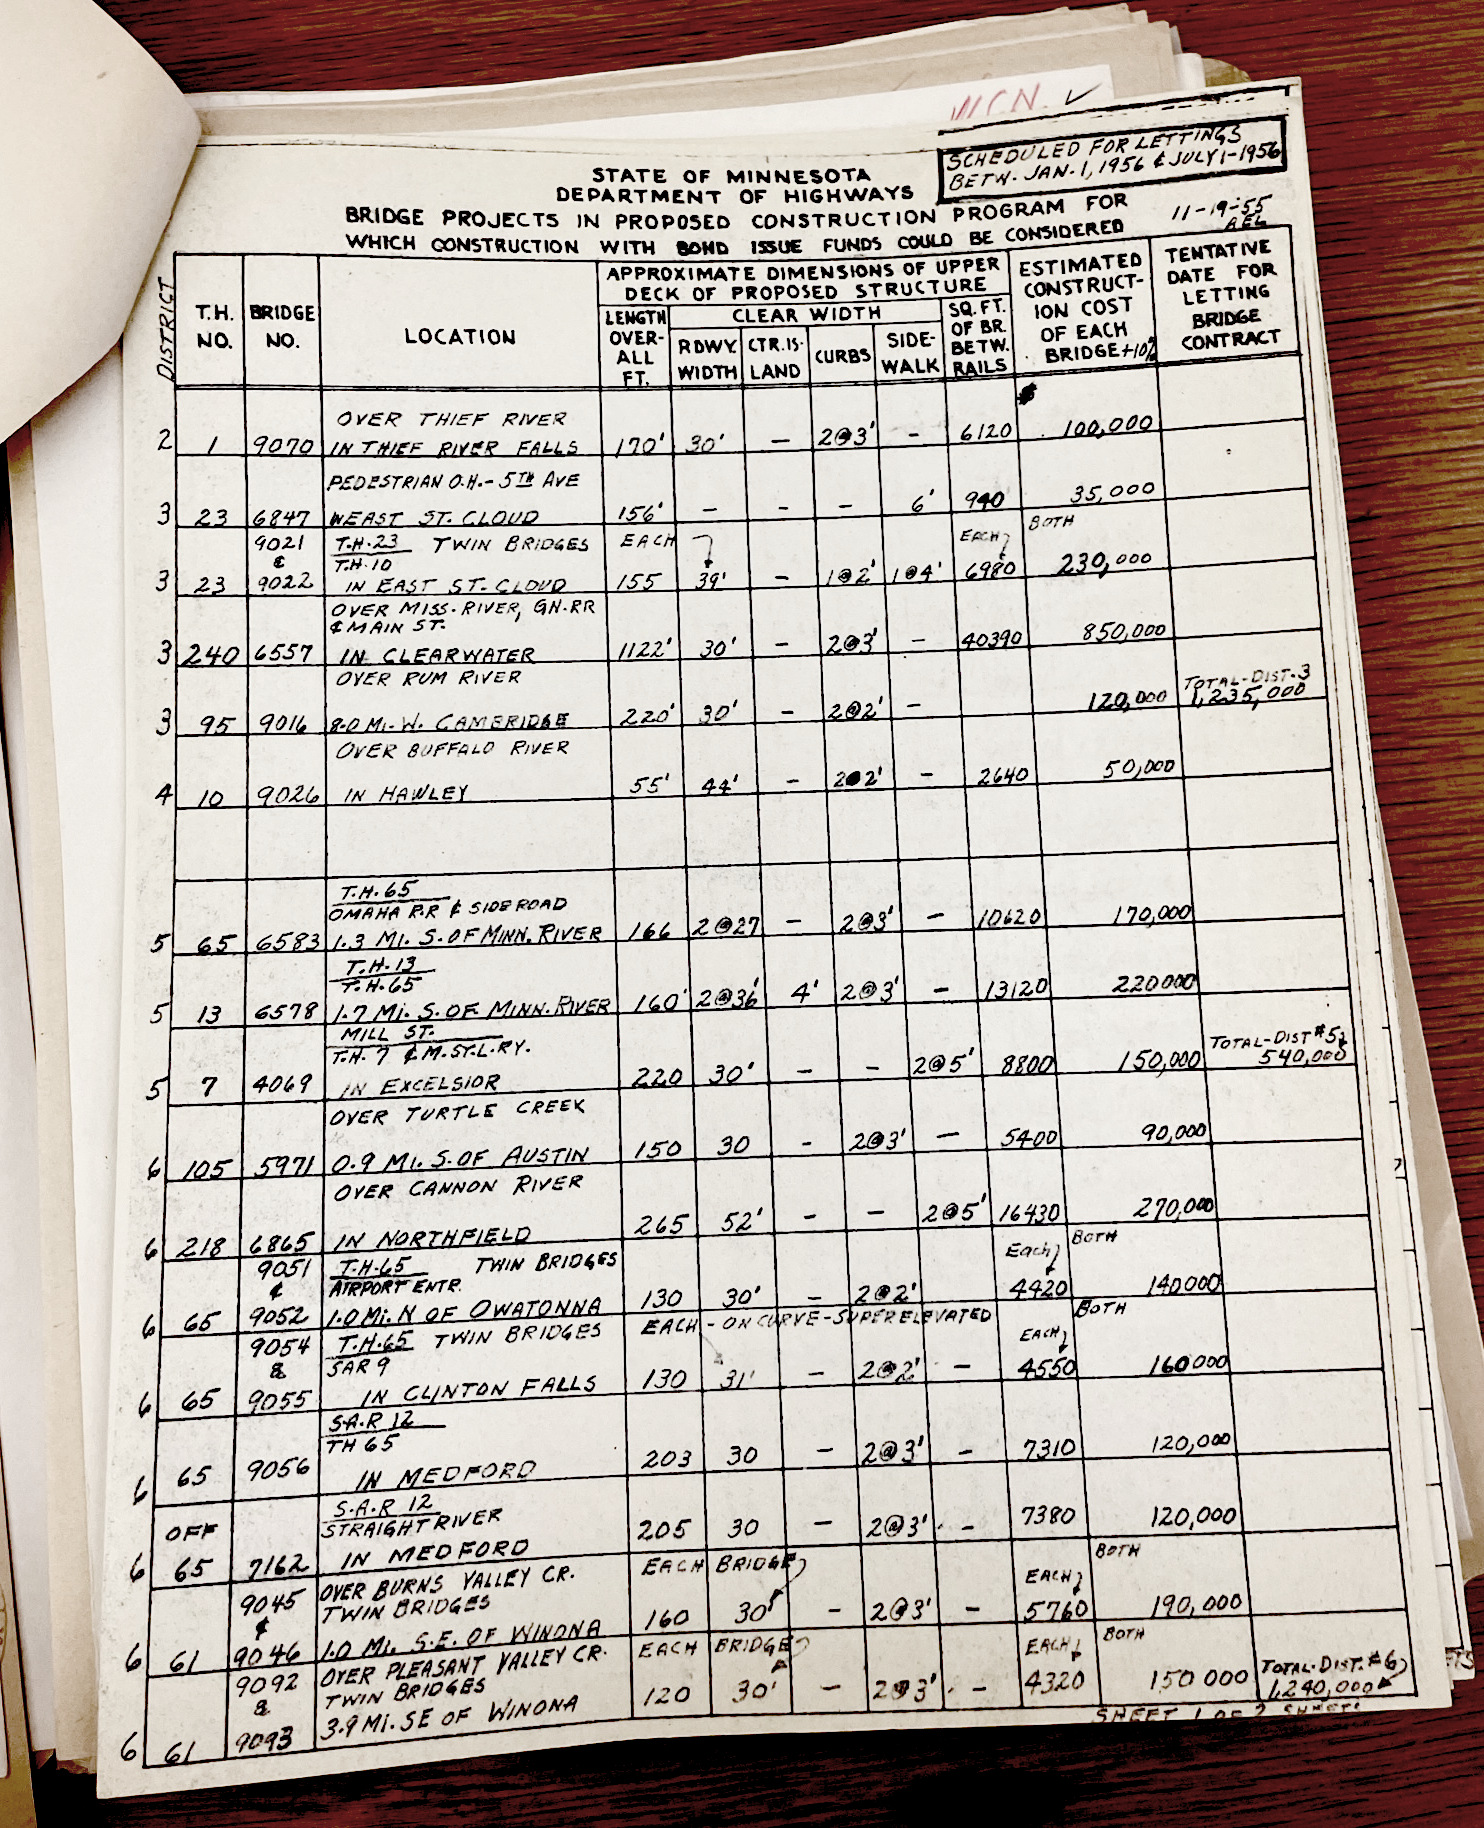 WCN ✓
SCHEDULED FOR LETTINGS
BETW. JAN. 1, 1956 & JULY 1-1956
STATE OF MINNESOTA
DEPARTMENT OF HIGHWAYS
BRIDGE PROJECTS IN PROPOSED CONSTRUCTION PROGRAM FOR
WHICH CONSTRUCTION WITH BOND ISSUE FUNDS COULD BE CONSIDERED
11-19-55
DISTRICT
T.H. NO.
BRIDGE NO.
LOCATION
APPROXIMATE DIMENSIONS OF UPPER
DECK OF PROPOSED STRUCTURE
LENGTH OVER-ALL FT.
CLEAR WIDTH
RDWY. WIDTH
CTR. IS-LAND
CURBS
SIDE-WALK
SQ. FT. OF BR. BETW. RAILS
ESTIMATED CONSTRUCT-ION COST OF EACH BRIDGE +10%
TENTATIVE DATE FOR LETTING BRIDGE CONTRACT
OVER THIEF RIVER
2 1 9070 IN THIEF RIVER FALLS 170' 30' - 2@3' - 6120 100,000
PEDESTRIAN O.H. - 5TH AVE
3 23 6847 EAST ST. CLOUD 156' - - - 6' 940 35,000
9021 T.H. 23 TWIN BRIDGES EACH EACH BOTH
& T.H. 10
3 23 9022 IN EAST ST. CLOUD 155 39' - 1@2' 1@4' 6980 230,000
OVER MISS. RIVER, GN. RR
& MAIN ST.
3 240 6557 IN CLEARWATER 1122' 30' - 2@3' - 40390 850,000
OVER RUM RIVER TOTAL-DIST. 3
3 95 9016 8.0 MI. W. CAMBRIDGE 220' 30' - 2@2' - 120,000 1,235,000
OVER BUFFALO RIVER
4 10 9026 IN HAWLEY 55' 44' - 2@2' - 2640 50,000
T.H. 65
OMAHA R.R & SIDE ROAD
5 65 6583 1.3 MI. S. OF MINN. RIVER 166 2@27 - 2@3' - 10620 170,000
T.H. 13
T.H. 65
5 13 6578 1.7 MI. S. OF MINN. RIVER 160' 2@36' 4' 2@3' - 13120 220000
MILL ST.
T.H. 7 & M. ST. L. RY. TOTAL-DIST #5
5 7 4069 IN EXCELSIOR 220 30' - - 2@5' 8800 150,000 540,000
OVER TURTLE CREEK
6 105 5971 0.9 MI. S. OF AUSTIN 150 30 - 2@3' - 5400 90,000
OVER CANNON RIVER
6 218 6865 IN NORTHFIELD 265 52' - - 2@5' 16430 270,000
9051 T.H. 65 TWIN BRIDGES Each BOTH
& AIRPORT ENTR.
6 65 9052 1.0 MI. N OF OWATONNA 130 30' - 2@2' 4420 140000
9054 T.H. 65 TWIN BRIDGES EACH - ON CURVE - SUPERELEVATED EACH BOTH
& SAR 9
6 65 9055 IN CLINTON FALLS 130 31' - 2@2' - 4550 160000
S.A.R 12
TH 65
6 65 9056 IN MEDFORD 203 30 - 2@3' - 7310 120,000
S.A.R 12
OFF STRAIGHT RIVER
6 65 7162 IN MEDFORD 205 30 - 2@3' - 7380 120,000
9045 OVER BURNS VALLEY CR. EACH BRIDGE EACH BOTH
& TWIN BRIDGES
6 61 9046 1.0 MI. S.E. OF WINONA 160 30' - 2@3' - 5760 190,000
9092 OVER PLEASANT VALLEY CR. EACH BRIDGE EACH BOTH
& TWIN BRIDGES TOTAL-DIST. #6
6 61 9093 3.9 MI. SE OF WINONA 120 30' - 2@3' - 4320 150 000 1,240,000
SHEET 1 OF 2 SHEETS